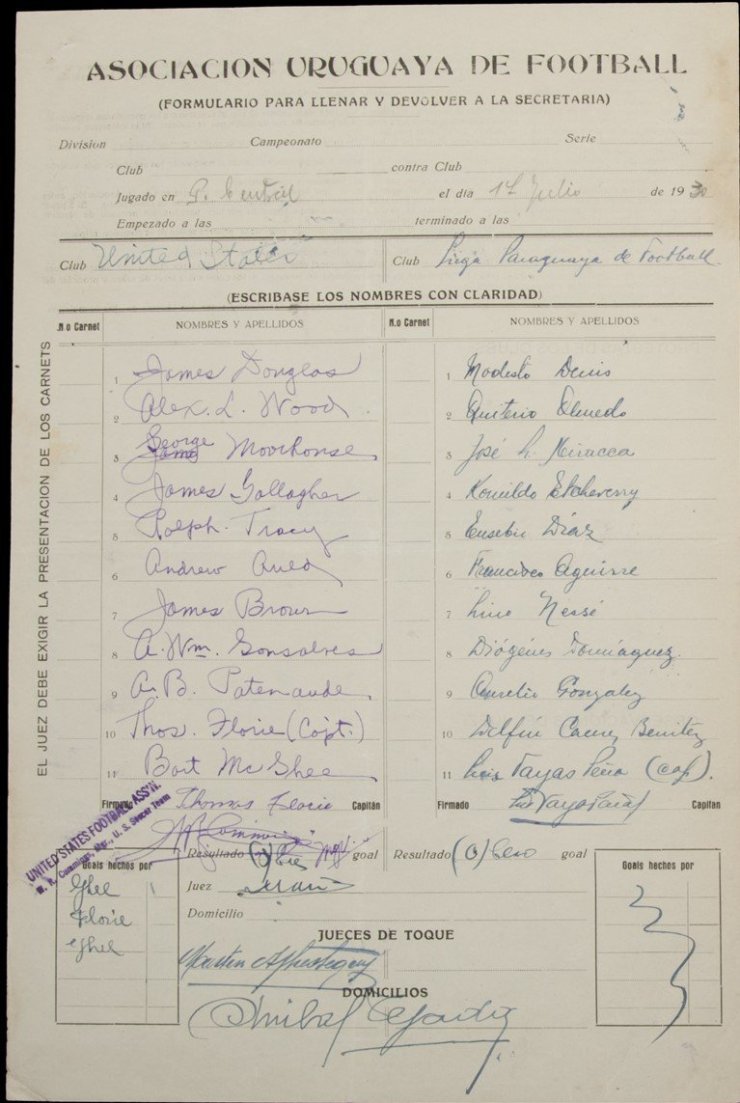 ASOCIACION URUGUAYA DE FOOTBALL
(FORMULARIO PARA LLENAR Y DEVOLVER A LA SECRETARIA)
Division Campeonato Serie
Club contra Club
Jugado en P. Central el dia 17 Julio de 1930
Empezado a las terminado a las
Club United States Club Liga Paraguaya de Football
(ESCRIBASE LOS NOMBRES CON CLARIDAD)
N.o Carnet NOMBRES Y APELLIDOS N.o Carnet NOMBRES Y APELLIDOS
EL JUEZ DEBE EXIGIR LA PRESENTACION DE LOS CARNETS
1 James Douglas 1 Modesto Denis
2 Alex. L. Wood 2 Quiterio Olmedo
3 George Moorhouse 3 José L. Miracca
4 James Gallagher 4 Romildo Etcheverry
5 Ralph Tracy 5 Eusebio Díaz
6 Andrew Auld 6 Francisco Aguirre
7 James Brown 7 Lino Nessi
8 A. Wm. Gonsalves 8 Diógenes Domínguez
9 A. B. Patenaude 9 Aurelio González
10 Thos. Florie (Capt.) 10 Delfín Benitez
11 Bart McGhee 11 Luis Vargas Peña (cap).
Firmado Thomas Florie Capitán Firmado Capitan
UNITED STATES FOOTBALL ASS'N.
W. R. Cummings, Mgr., U. S. Soccer Team
Resultado (3) goal Resultado (0) Cero goal
Goals hechos por Goals hechos por
Juez
Ghee
Florie
Ghee
Domicilio
JUECES DE TOQUE
DOMICILIOS
Anibal Tejada